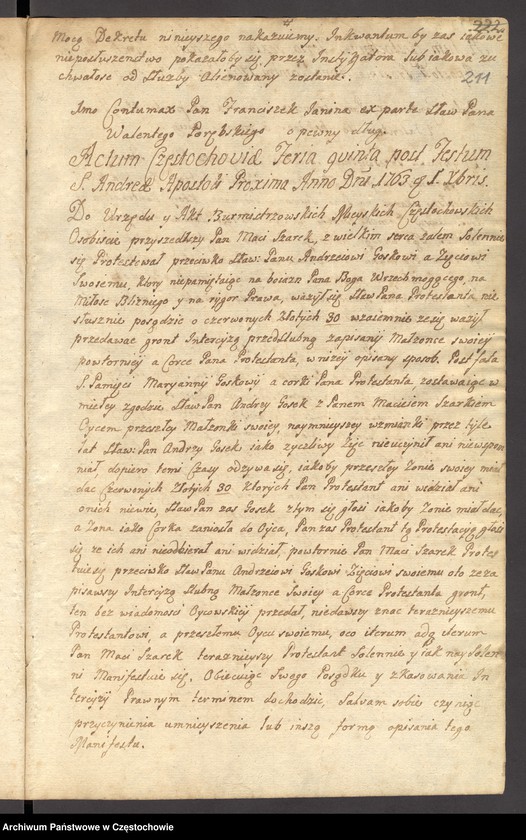 222
211
Mocą Dekretu ninieyszego nakazuiemy. Inkwantum by zas iakowe
nieposłuszenstwo pokazałoby się przez Instygatora lub iakowa zu
chwałosc od Służby Abcnowany zostanie.
Imo Contumax Pan Franciszek Janina ex parte Sław Pana
Walentego Porębskiego o pewny dług.
Actum Częstochoviæ Feria quinta post Festum
S. Andreæ Apostoli Proxima, Anno Dni 1763 q 1. Xbris.
Do Urzędu y Akt Burmistrzowskich Mieyskich Częstochowskich
Osobiscie przyszedłszy Pan Maci Szarek, z wielkim serca żalem Solennie
się Protestował przeciwko Sław: Panu Andrzeiowi Goskowi a Zięciowi
Swoiemu, ktory niepamiętaiąc na boiazn Pana Boga Wszechmogącego, na
Miłosc Blizniego y na rygor Prawa, ważył się Sław Pana Protestanta nie
słusznie posądzic o czerwonych Złotych 30 wzaiemnie zesię ważył
przedawac gront Intercyzą przedslubną zapisany Małzonce swoiey
powtorniey a Corce Pana Protestanta, w nizey opisany sposob. Post fata
S. Pamięci Maryanny Goskowy a corki Pana Protestanta zostawaiąc w
miełey zgodzie Sław Pan Andrzy Gosek z Panem Macieiem Szarkiem
Oycem przeszłey Małonki swoiey, naymnieyszey wzmianki przez tyle
lat Sław: Pan Andrzy Gosek iako zyczliwy Zięc nieuczynił ani niewspom
niał, dopiero temi czasy odzywa się, iakoby przeszłey żonie swoiey miał
dac Czerwonych Złotych 30 ktorych Pan Protestant ani widział ani
onich niewie, Sław Pan zas Gosek z tym się głosi iakoby Zonie miał dac,
a Zona iako Corka zaniosła do Oyca, Pan zas Protestant tą Protestacyą głosi
się ze ich ani nieodbierał ani widział, powtornie Pan Maci Szarek Protes
tuie się przeciwko Sław Panu Andrzeiowi Goskowi Zięciowi swoiemu oto ze za
pisawszy Intercyzą Slubną Małzonce Swoiey a Corce Protestanta gront,
ten bez wiadomosci Oycowskiey przedał, niedawszy znac terazniyszemu
Protestantowi, a przeszłemu Oycu swoiemu, oco iterum adq iterum
Pan Maci Szarek terazniyszy Protestant Solennie y iak naysolen
ni Manifestuie się. Obiecuiąc Swego Posądku y zkasowania In
tercyzy Prawnym terminem dochodzic, Salvam sobie czyniąc
przyczynienia umnieyszenia lub inszą formę opisania tego
Manifestu.
Archiwum Państwowe w Częstochowie